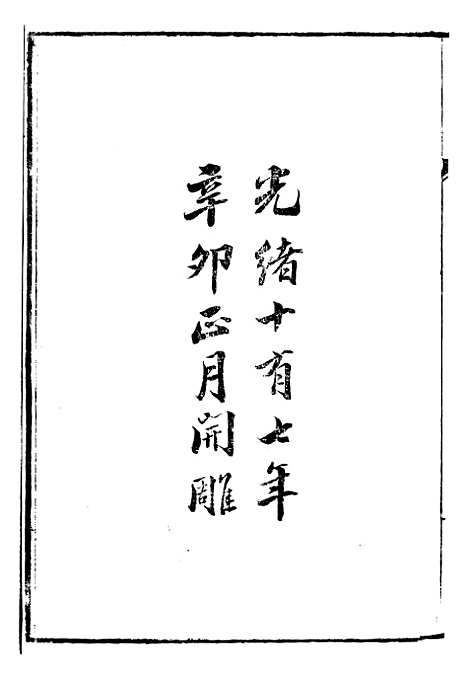 光緒十有七年
辛卯正月開雕